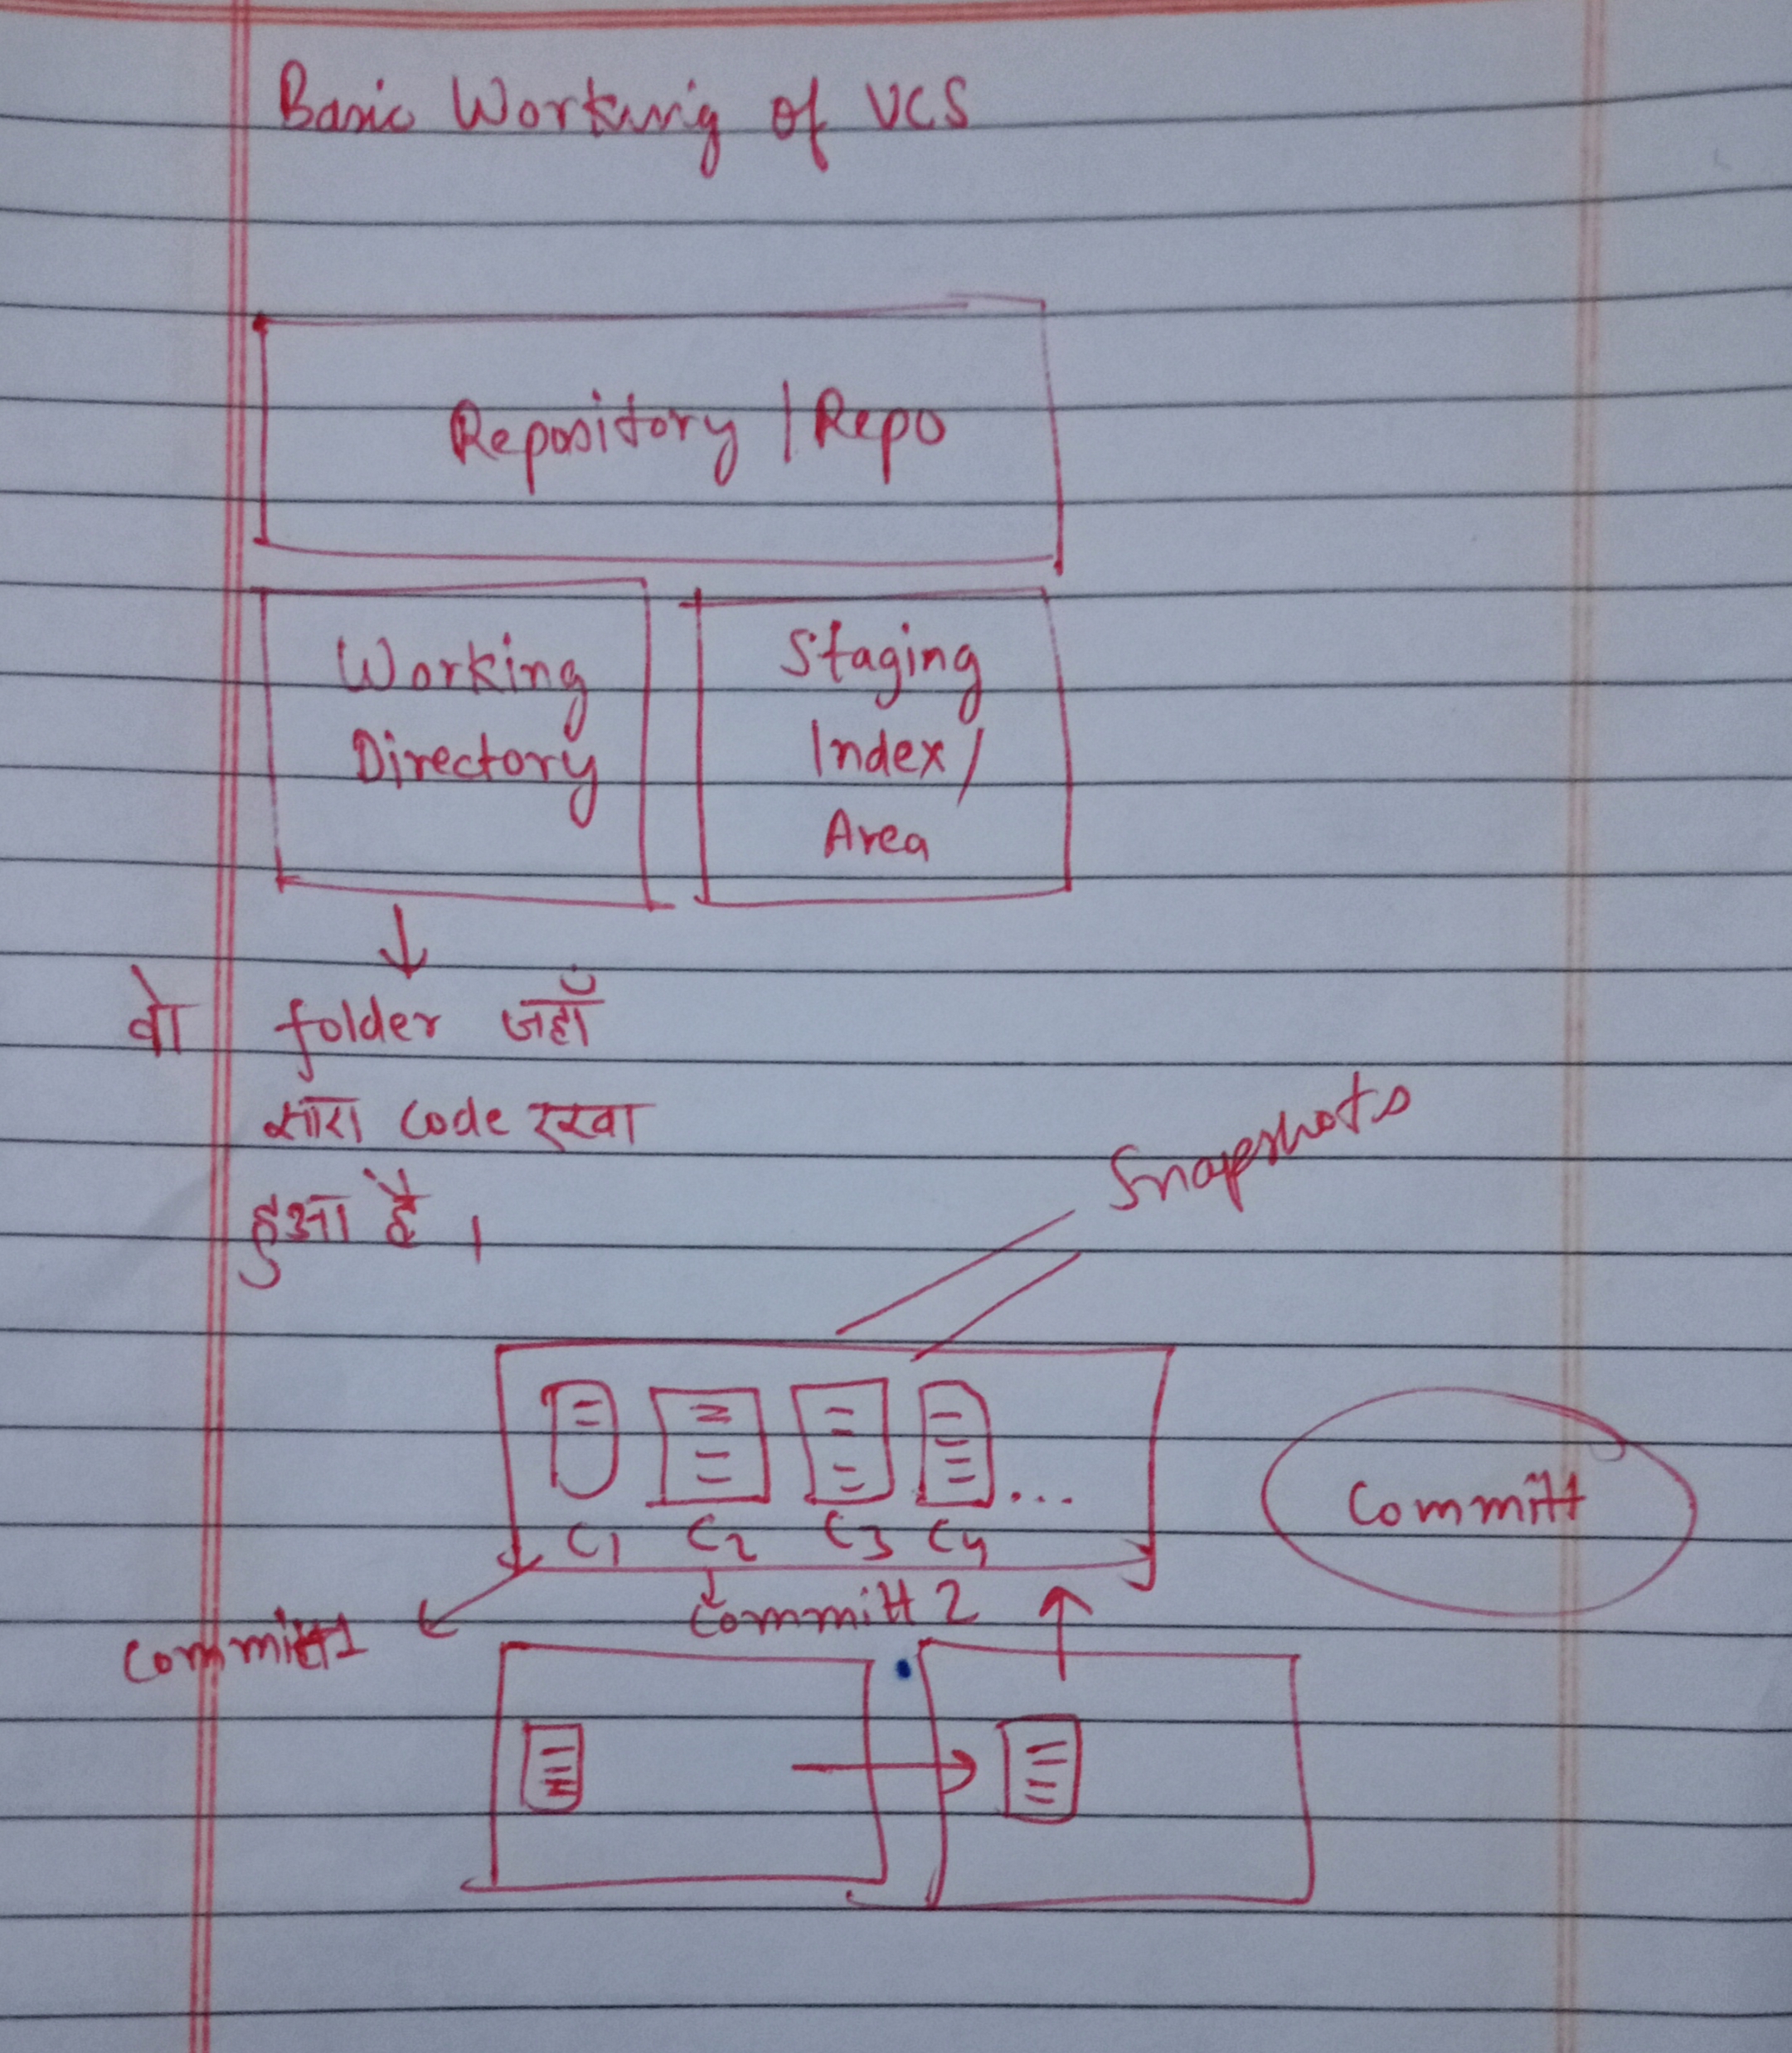 Basic Working of VCS
Repository | Repo
Working
Directory
Staging
Index /
Area
वो folder जहाँ
सारा code रखा
हुआ है ।
Snapshots
C1 C2 C3 C4 ...
Committ
Committ 2
Committ1